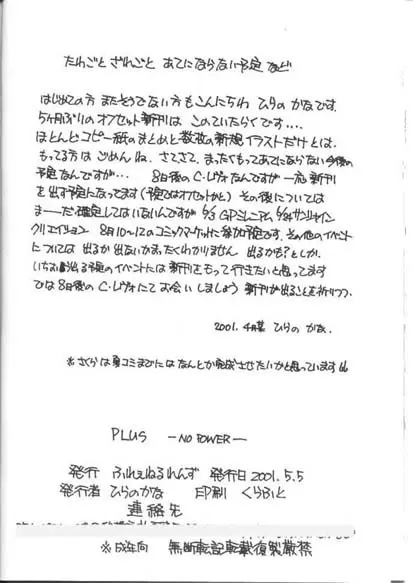 たわごと ざれごと あてにならない予定など
はじめての方 またそうでない方もこんにちわ ひらの かなです。
5ヶ月ぶりのオフセット新刊は このていたらくです....
ほとんどコピー紙のまとめと数枚の新規イラストだけとは、
もってる方は ごめんね、さてさて、まったくもってあてにならない今後の
予定なんですが... 8日後のC・レヴォなんですが一応 新刊
を出す予定になってます(予定ではオフセットかと) その後については
まーだ確定してはいないんですが 6/3 GPジュニア, 6/24サンシャイン
クリエイション 8月10〜12のコミックマーケットに参加予定です、その他のイベント
については 出るか出ないかまったくわかりません 出るかも?としか、
いちおう出る予定のイベントには 新刊をもって行きたいと思ってます
では 8日後の C・レヴォにてお会いしましょう 新刊が出ることを祈りつつ、
2001. 4月某 ひらの かな、
※さくらは夏コミまでにはなんとか完成させたいかと思っています
PLUS —NO POWER—
発行 ふれぇねるれんず 発行日 2001.5.5
発行者 ひらのかな 印刷 くらふと
連絡先
※成年向 無断転記転載復製厳禁